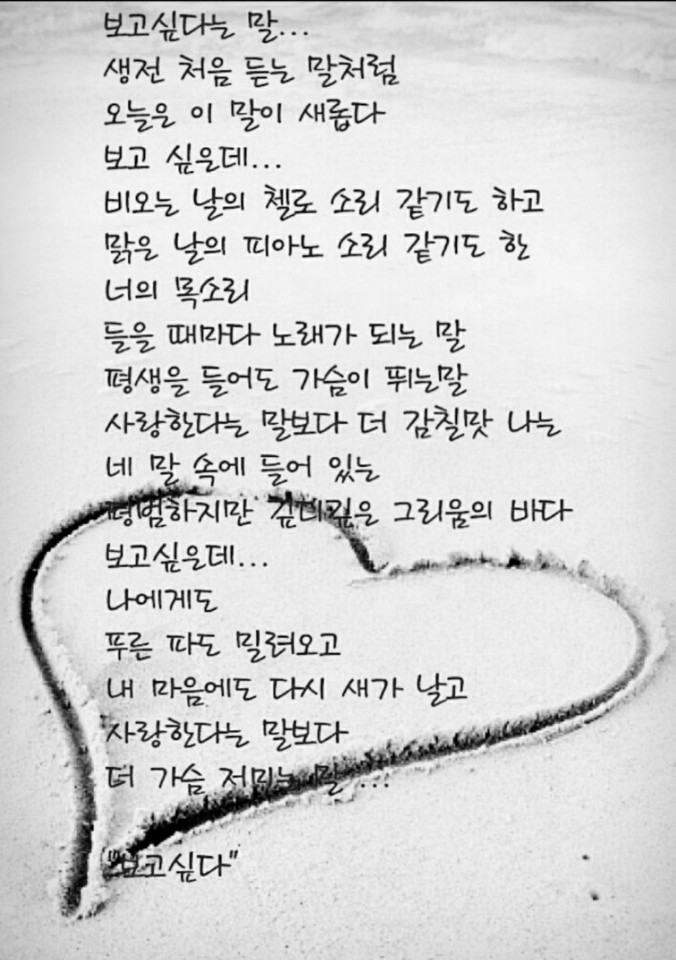 보고싶다는 말...
생전 처음 듣는 말처럼
오늘은 이 말이 새롭다
보고 싶은데...
비오는 날의 첼로 소리 같기도 하고
맑은 날의 피아노 소리 같기도 한
너의 목소리
들을 때마다 노래가 되는 말
평생을 들어도 가슴이 뛰는말
사랑한다는 말보다 더 감칠맛 나는
네 말 속에 들어 있는
평범하지만 깊디깊은 그리움의 바다
보고싶은데...
나에게도
푸른 파도 밀려오고
내 마음에도 다시 새가 날고
사랑한다는 말보다
더 가슴 저미는 말 ...
"보고싶다"